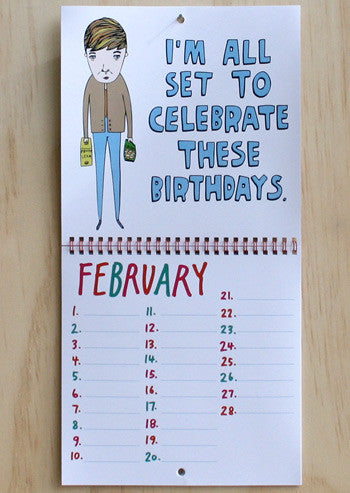 I'M ALL
SET TO
CELEBRATE
THESE
BIRTHDAYS.
FEBRUARY
1.
2.
3.
4.
5.
6.
7.
8.
9.
10.
11.
12.
13.
14.
15.
16.
17.
18.
19.
20.
21.
22.
23.
24.
25.
26.
27.
28.